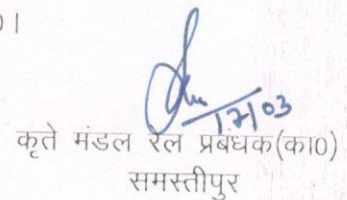 1.7/03
कृते मंडल रेल प्रबंधक(का0)
समस्तीपुर